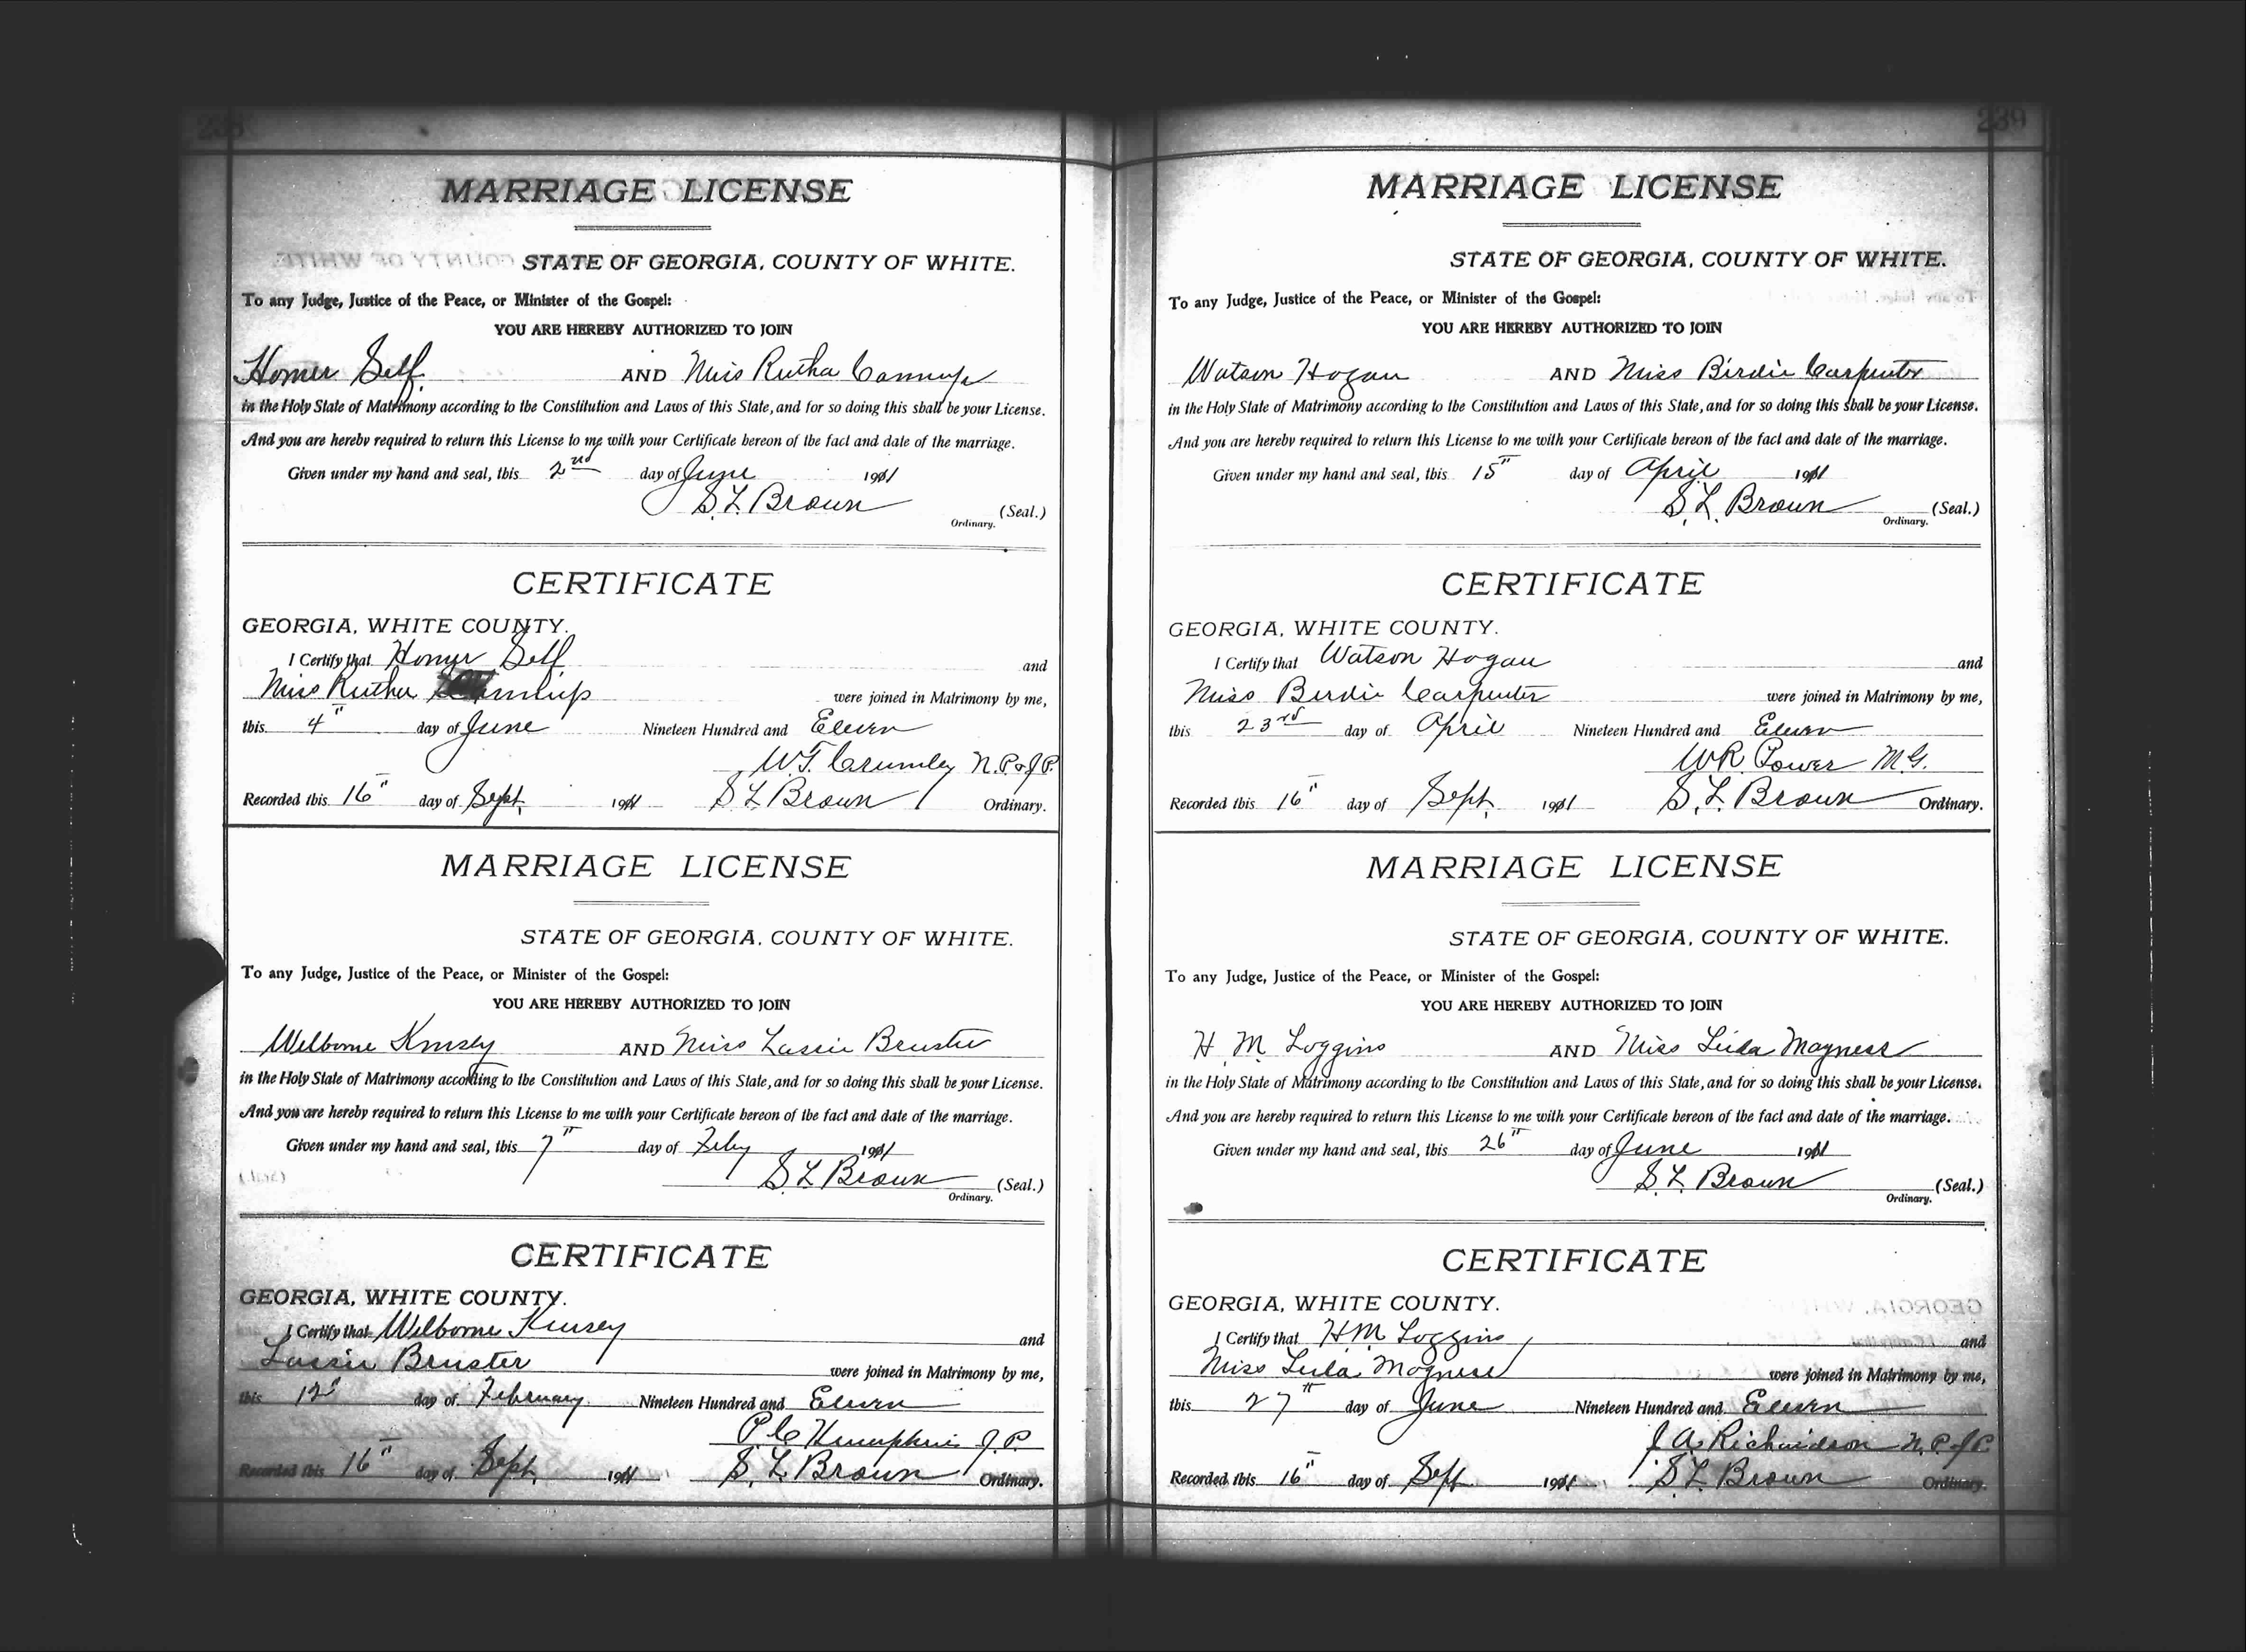 238
MARRIAGE LICENSE
STATE OF GEORGIA, COUNTY OF WHITE.
To any Judge, Justice of the Peace, or Minister of the Gospel:
YOU ARE HEREBY AUTHORIZED TO JOIN
Homer Self. AND Miss Rutha Cannup
in the Holy State of Matrimony according to the Constitution and Laws of this State, and for so doing this shall be your License.
And you are hereby required to return this License to me with your Certificate hereon of the fact and date of the marriage.
Given under my hand and seal, this 2nd day of June 1911
S. L. Brown (Seal.)
Ordinary.
CERTIFICATE
GEORGIA, WHITE COUNTY.
I Certify that Homer Self and
Miss Rutha Cannup were joined in Matrimony by me,
this 4" day of June Nineteen Hundred and Eleven
W. T. Crumley N. P. & J. P.
Recorded this 16" day of Sept. 1911 S L Brown Ordinary.
MARRIAGE LICENSE
STATE OF GEORGIA, COUNTY OF WHITE.
To any Judge, Justice of the Peace, or Minister of the Gospel:
YOU ARE HEREBY AUTHORIZED TO JOIN
Welborne Kinsey AND Miss Lassie Bruster
in the Holy State of Matrimony according to the Constitution and Laws of this State, and for so doing this shall be your License.
And you are hereby required to return this License to me with your Certificate hereon of the fact and date of the marriage.
Given under my hand and seal, this 7" day of Feby 1911
S L Brown (Seal.)
Ordinary.
CERTIFICATE
GEORGIA, WHITE COUNTY.
I Certify that Welborne Kinsey and
Lassie Bruster were joined in Matrimony by me,
this 12" day of February Nineteen Hundred and Eleven
P. C. Humphries J. P.
Recorded this 16" day of Sept. 1911 S. L. Brown Ordinary.
239
MARRIAGE LICENSE
STATE OF GEORGIA, COUNTY OF WHITE.
To any Judge, Justice of the Peace, or Minister of the Gospel:
YOU ARE HEREBY AUTHORIZED TO JOIN
Watson Hogan AND Miss Birdie Carpenter
in the Holy State of Matrimony according to the Constitution and Laws of this State, and for so doing this shall be your License.
And you are hereby required to return this License to me with your Certificate hereon of the fact and date of the marriage.
Given under my hand and seal, this 15" day of April 1911
S. L. Brown (Seal.)
Ordinary.
CERTIFICATE
GEORGIA, WHITE COUNTY.
I Certify that Watson Hogan and
Miss Birdie Carpenter were joined in Matrimony by me,
this 23rd day of April Nineteen Hundred and Eleven
W R. Power M. G.
Recorded this 16" day of Sept. 1911 S. L. Brown Ordinary.
MARRIAGE LICENSE
STATE OF GEORGIA, COUNTY OF WHITE.
To any Judge, Justice of the Peace, or Minister of the Gospel:
YOU ARE HEREBY AUTHORIZED TO JOIN
H. M. Loggins AND Miss Leila Magness
in the Holy State of Matrimony according to the Constitution and Laws of this State, and for so doing this shall be your License.
And you are hereby required to return this License to me with your Certificate hereon of the fact and date of the marriage.
Given under my hand and seal, this 26" day of June 1911
S. L. Brown (Seal.)
Ordinary.
CERTIFICATE
GEORGIA, WHITE COUNTY.
I Certify that H. M. Loggins and
Miss Leila Magness were joined in Matrimony by me,
this 27" day of June Nineteen Hundred and Eleven
J. A. Richardson N. P. J. P.
Recorded this 16" day of Sept 1911 S. L. Brown Ordinary.